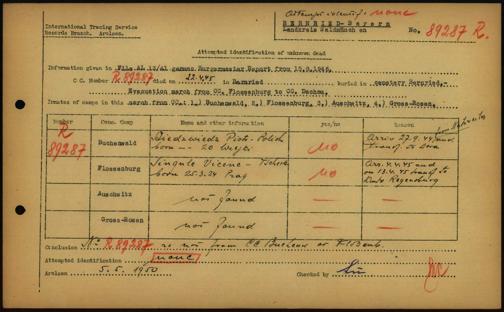 International Tracing Service
Records Branch. Arolsen.
none
BERNRIED-Bayern
Landkreis
No. 89287 R.
Attempted identification of unknown dead
Information given in File AL 12/A1 Burgermeister Report from
C.C. Number R 89287 died on 22.4.45 in Bernried buried in cemetery Bernried.
Evacuation march from CC. Flossenburg to CC. Dachau.
Inmates of camps in this march from CC. 1.) Buchenwald, 2.) Flossenburg, 3.) Auschwitz, 4.) Gross-Rosen.
Number Conc. Camp Name and other information yes/no Reason
R 89287
Buchenwald Piotr - Polish born no Arriv 27.9.44 and transf. to
Flossenburg Vicenc born 25.3.24 Prag no Arr. 4.4.45 and on 13.4.45 transf to Regensburg
Auschwitz not found —
Gross-Rosen not found —
Conclusion No R 89287 is not from CC Buchenw or Flossenb.
Attempted identification none
Arolsen 5.5.1950 Checked by